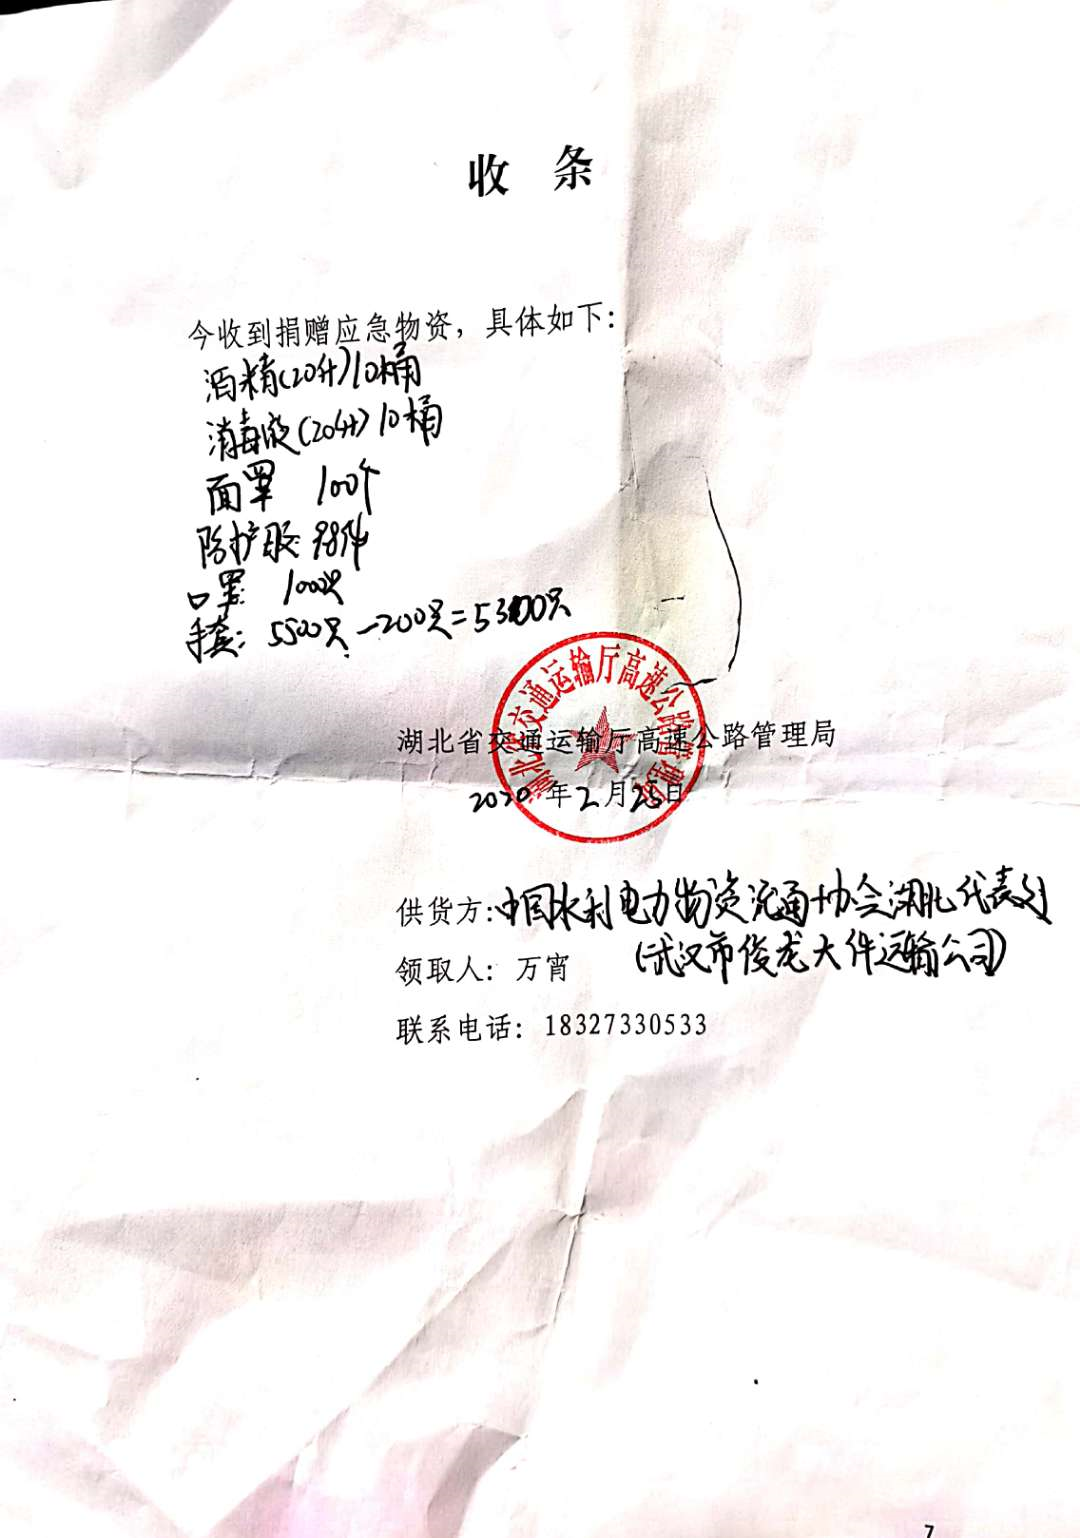 收 条
今收到捐赠应急物资，具体如下：
酒精(20升)10桶
消毒液(20升)10桶
面罩 100个
防护服：98件
口罩： 1000只
手套： 5500只－200只＝5300只
湖北省交通运输厅高速公路管理局
湖北省交通运输厅高速公路管理局
2020年2月25日
供货方：中国水利电力物资流通协会湖北代表处
(武汉市俊龙大件运输公司)
领取人：万宵
联系电话：18327330533
7